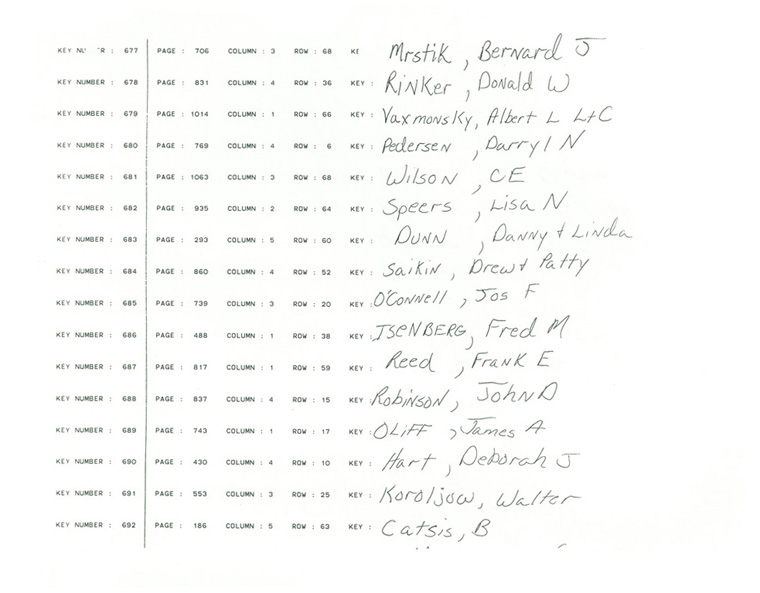 KEY NU R : 677 PAGE : 706 COLUMN : 3 ROW : 68 KE Mrstik, Bernard J
KEY NUMBER : 678 PAGE : 831 COLUMN : 4 ROW : 36 KEY : Rinker, Donald W
KEY NUMBER : 679 PAGE : 1014 COLUMN : 1 ROW : 66 KEY : Vaxmonsky, Albert L LtC
KEY NUMBER : 680 PAGE : 769 COLUMN : 4 ROW : 6 KEY : Pedersen, Darryl N
KEY NUMBER : 681 PAGE : 1063 COLUMN : 3 ROW : 68 KEY : Wilson, CE
KEY NUMBER : 682 PAGE : 935 COLUMN : 2 ROW : 64 KEY : Speers, Lisa N
KEY NUMBER : 683 PAGE : 293 COLUMN : 5 ROW : 60 KEY : DUNN, Danny + Linda
KEY NUMBER : 684 PAGE : 860 COLUMN : 4 ROW : 52 KEY : Saikin, Drew + Patty
KEY NUMBER : 685 PAGE : 739 COLUMN : 3 ROW : 20 KEY : O'Connell, Jos F
KEY NUMBER : 686 PAGE : 488 COLUMN : 1 ROW : 38 KEY : ISENBERG, Fred M
KEY NUMBER : 687 PAGE : 817 COLUMN : 1 ROW : 59 KEY : Reed, Frank E
KEY NUMBER : 688 PAGE : 837 COLUMN : 4 ROW : 15 KEY : Robinson, John D
KEY NUMBER : 689 PAGE : 743 COLUMN : 1 ROW : 17 KEY : Oliff, James A
KEY NUMBER : 690 PAGE : 430 COLUMN : 4 ROW : 10 KEY : Hart, Deborah J
KEY NUMBER : 691 PAGE : 553 COLUMN : 3 ROW : 25 KEY : Koroljow, Walter
KEY NUMBER : 692 PAGE : 186 COLUMN : 5 ROW : 63 KEY : Catsis, B